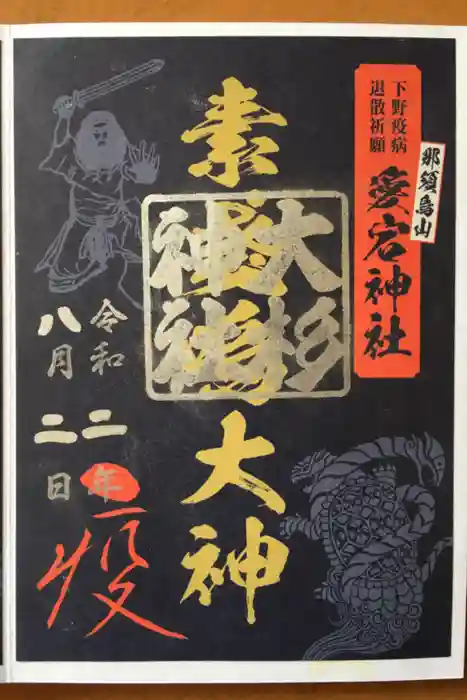 下野疫病
退散祈願
那須烏山
愛宕神社
素戔嗚大神
大杉
神社
令和二年
八月二日
疫